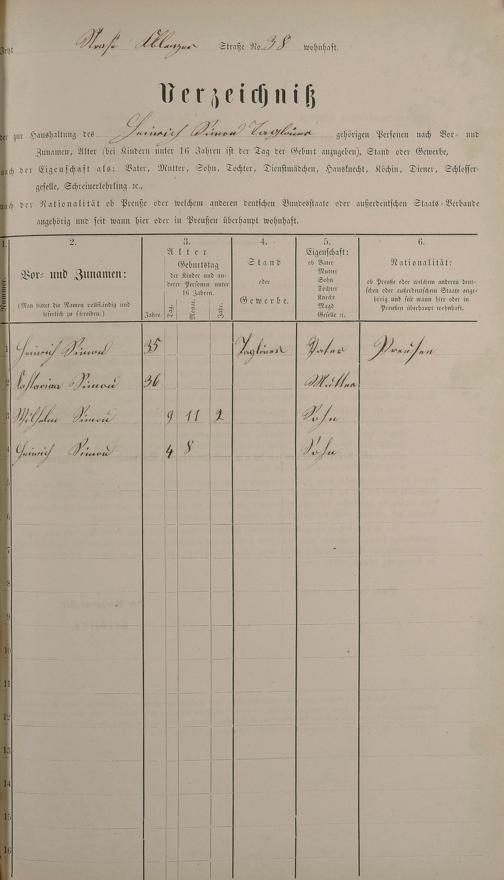 Straße Coblenzer Straße No. 38 wohnhaft.
Verzeichniß
der zur Haushaltung des Heinrich Simon Taglöner gehörigen Personen nach Vor- und
Zunamen, Alter (bei Kindern unter 16 Jahren ist der Tag der Geburt anzugeben), Stand oder Gewerbe,
nach der Eigenschaft als: Vater, Mutter, Sohn, Tochter, Dienstmädchen, Hausknecht, Köchin, Diener, Schlosser-
geselle, Schreinerlehrling ꝛc.,
nach der Nationalität ob Preuße oder welchem anderen deutschen Bundesstaate oder außerdeutschen Staats-Verbande
angehörig und seit wann hier oder in Preußen überhaupt wohnhaft.
1. 2. 3. 4. 5. 6.
Nummer.
Vor- und Zunamen:
(Man bittet die Namen vollständig und
leserlich zu schreiben.)
Alter
Geburtstag
der Kinder und an-
derer Personen unter
16 Jahren.
Jahre. Tag. Monat. Jahr.
Stand
oder
Gewerbe.
Eigenschaft:
ob Vater
Mutter
Sohn
Tochter
Knecht
Magd
Geselle ꝛc.
Nationalität:
ob Preuße oder welchem anderen deut-
schen oder außerdeutschen Staate ange-
hörig und seit wann hier oder in
Preußen überhaupt wohnhaft.
1 Heinrich Simon 35 Taglöner Vater Preußen
2 Simon 36 Mutter
3 Wilhelm Simon 9 11 2 Sohn
4 Heinrich Simon 4 8 Sohn
5
6
7
8
9
10
11
12
13
14
15
16